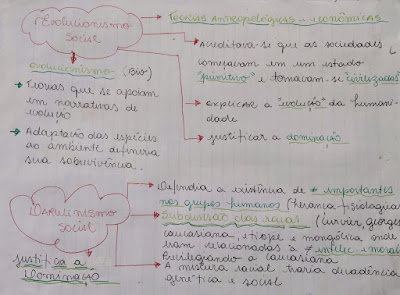 Evolucionismo
Social
→ Teorias antropológicas e econômicas
→ acreditava-se que as sociedades
começavam em um estado
"primitivo" e tornavam-se "civilizadas"
→ explicar a "evolução" da humani-
dade
→ justificar a dominação
evolucionismo (Bio)
→ Teorias que se apoiam
em narrativas de
evolução
→ Adaptação das espécies
ao ambiente definiria
sua sobrevivência.
Darwinismo
Social
justifica a
Dominação
→ Defendia a existência de ≠ importantes
nos grupos humanos (herança fisiológica
→ Subdivisão das raças (Cuvier, Georges
caucasiana, etíope e mongólica onde
eram relacionadas à ≠ intelec e moral
Privilegiando a caucasiana
→ A mistura racial traria decadência
genética e social